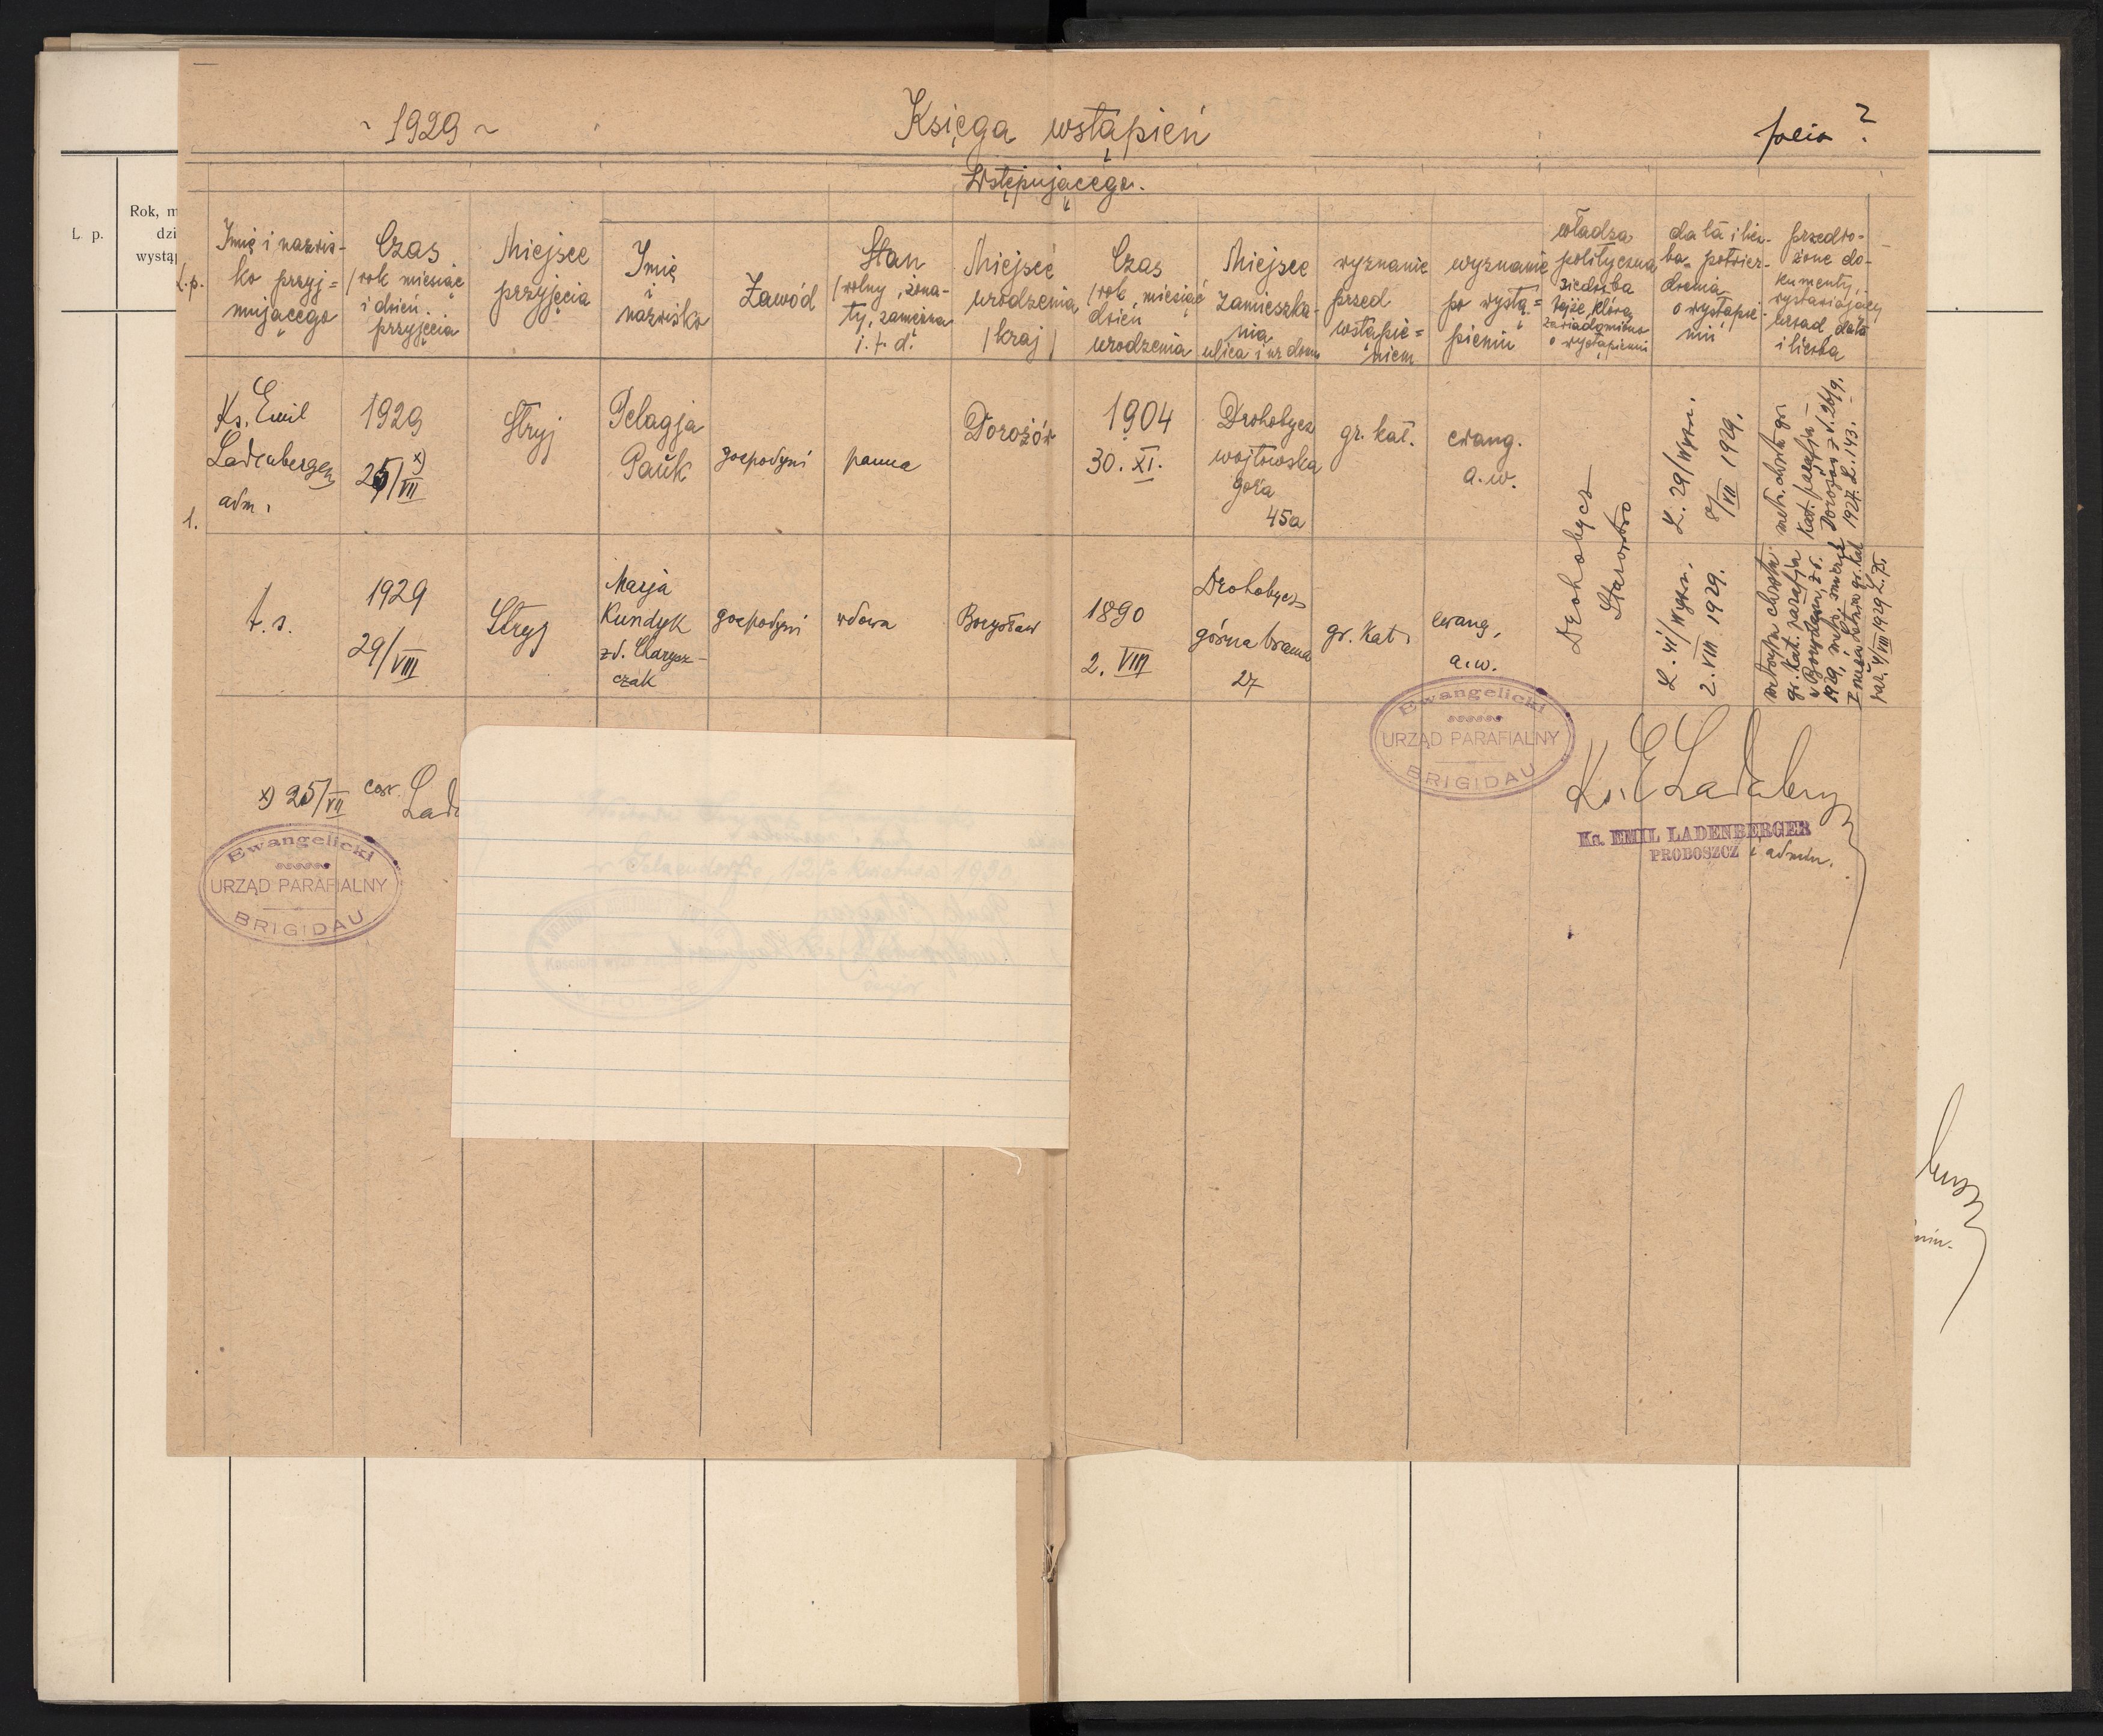 ~ 1929 ~
Księga wstąpień
folio ?
Wstępującego.
L. p.
Rok, m
dzi
wystąp
L.p.
Imię i nazwis-
ko przyj=
mującego
Czas
/ rok miesiąc
i dzień
przyjęcia
Miejsce
przyjęcia
Imię
i
nazwisko
Zawód
Stan
/ wolny, żona-
ty, zamężna
i. t. d.
Miejsce
urodzenia
/ kraj /
Czas
/ rok, miesiąc
dzień
urodzenia
Miejsce
zamieszka-
nia
ulica i nr domu
wyznanie
przed
wstąpie=
niem
wyznanie
po wystą=
pieniu
władza
polityczna
siedziba
tejże, którą
zawiadomiono
o wystąpieniu
data i licz-
ba potwier-
dzenia
o wystąpie-
niu
przedło-
żone do-
kumenty,
wystawiający
urząd, data
i liczba
1.
Ks. Emil
Ladenberger
adm.
1929
25/VII x)
Stryj
Pelagja
Pauk
gospodyni
panna
Dorożów
1904
30. XI.
Drohobycz
wojtowska
góra
45a
gr. kat.
ewang.
a. w.
Drohobycz
Starostwo
L. 29/Wyzn.
8/VII 1929.
metr. chrztu gr.
kat. parafju
Dorożów z d. 26/9.
1927. L. 143.
t. s.
1929
29/VIII
Stryj
Marja
Kundyk
z d. Charysz-
czak
gospodyni
wdowa
Borysław
1890
2. VIII
Drohobycz
górna brama
27
gr. Kat.
ewang.
a. w.
L. 41/Wyzn.
2. VIII 1929.
metryka chrztu
gr. kat. parafju
w Borysławiu, z d.
1929, metr. śmierci
gr. kat
4/VIII 1929 L. 75.
x) 25/VII corr. Lad
Ewangelicki
URZĄD PARAFIALNY
BRIGIDAU
Ewangelicki
URZĄD PARAFIALNY
BRIGIDAU
Ks. E Ladenberger
Ks. EMIL LADENBERGER
PROBOSZCZ i admin.